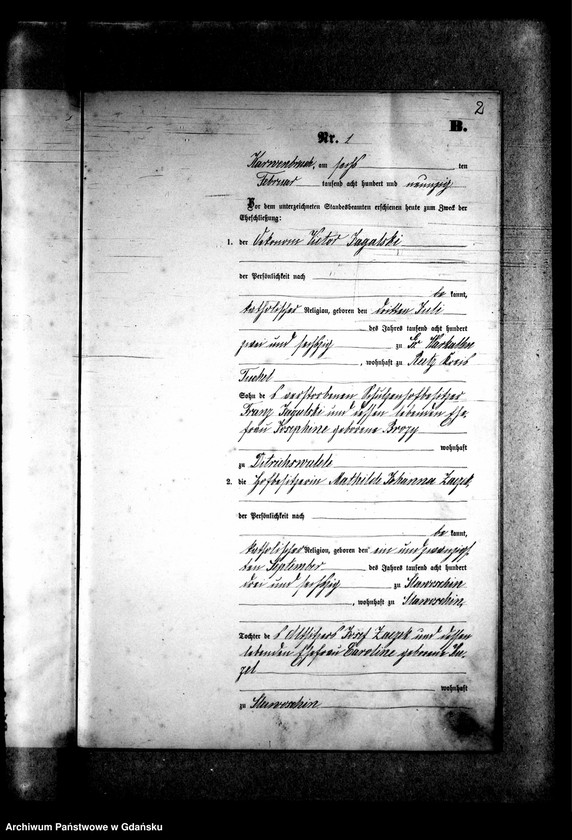 2
B.
Nr. 1
Karwenbruch, am sechs ten
Februar tausend acht hundert und neunzig
Vor dem unterzeichneten Standesbeamten erschienen heute zum Zweck der
Eheschließung:
1. der Oekonom Victor Jagalski
der Persönlichkeit nach
be kannt,
katholischer Religion, geboren den dritten Juli
des Jahres tausend acht hundert
zwei und sechszig zu Gr
, wohnhaft zu Kreis
Tuchel
Sohn de s verstorbenen Schulzenhofbesitzer
Franz Jagalski und dessen lebenden Ehe-
frau Josephine geborene
wohnhaft
zu Dietrichswalde
2. die Hofbesitzerin Mathilde Johanna
der Persönlichkeit nach
be kannt,
katholischer Religion, geboren den ein und zwanzig
ten September des Jahres tausend acht hundert
drei und sechszig zu Slawoschin
, wohnhaft zu Slawoschin
Tochter de s Altsitzers Josef und dessen
lebenden Ehefrau Caroline geborene
wohnhaft
zu Slawoschin
Archiwum Państwowe w Gdańsku